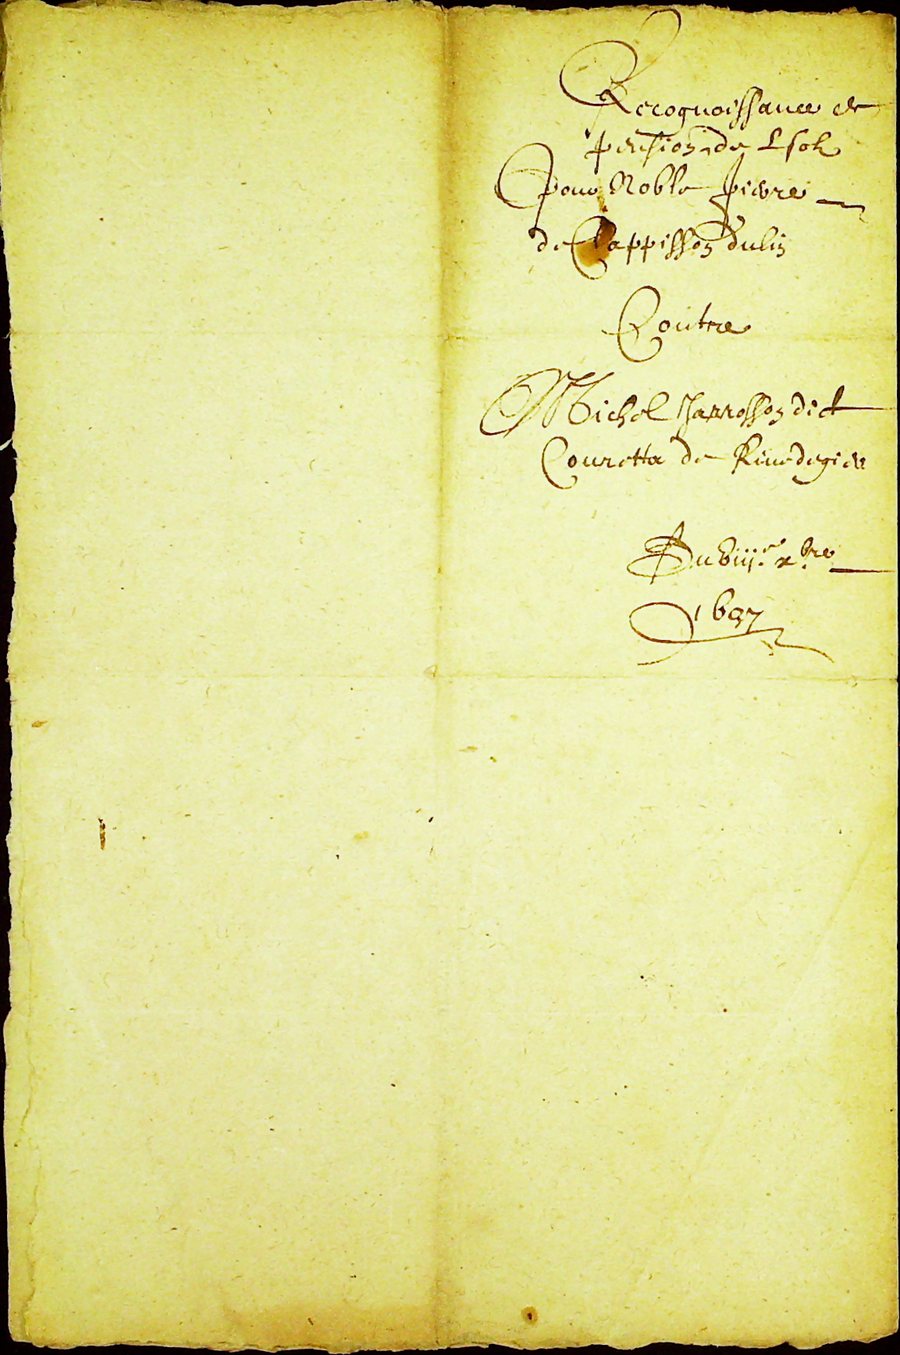 Recognoissance et
pension de L sols
Pour Noble Pierre
de Cappisson Dulin
Contre
Michel Jarrosson dict
Couretta de Rivedegier
Du viij.e x.bre
1697